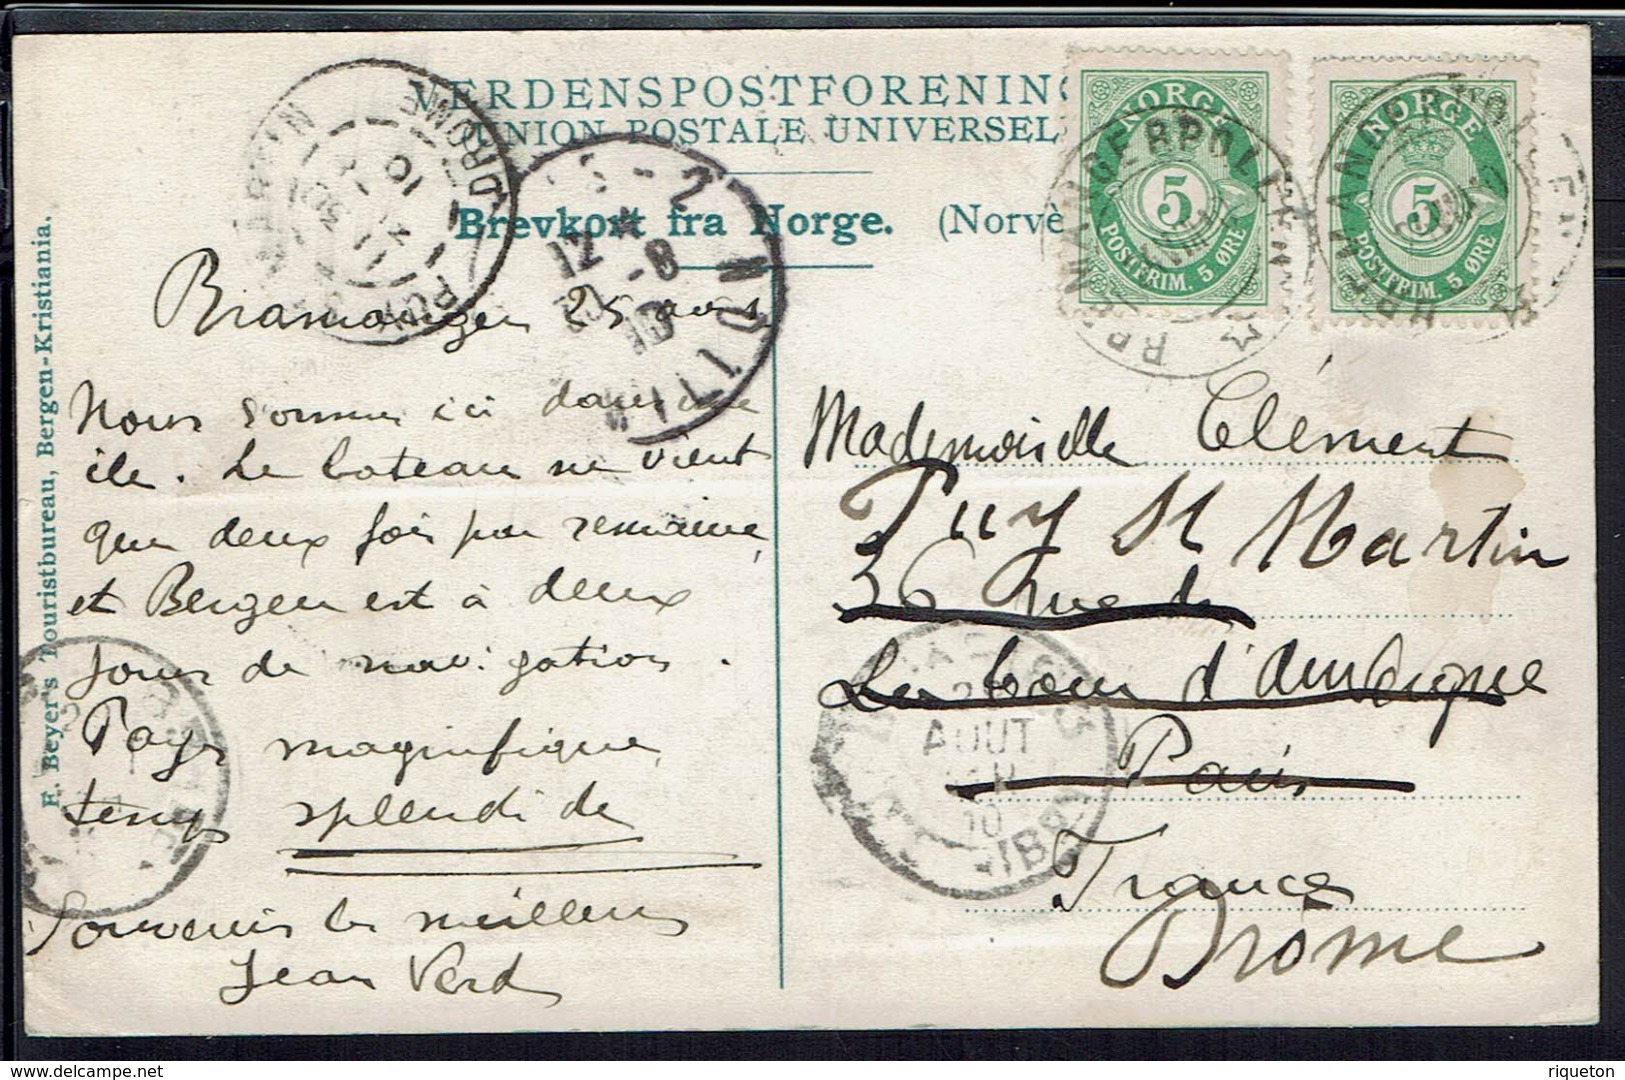 VERDENSPOSTFORENIN
UNION POSTALE UNIVERSEL
Brevkort fra Norge. (Norvè
NORGE
5
POSTFRIM. 5 ØRE
NORGE
5
POSTFRIM. 5 ØRE
PUY
DROME
10
12
8
AOUT
10
F. Beyer's Touristbureau, Bergen-Kristiania.
Bramanger 25 aout
Nous sommes ici dans une
ile. Le bateau ne vient
que deux fois par semaine,
et Bergen est à deux
jours de navigation.
Pays magnifique,
temps splendide
Souvenirs les meilleurs
Jean Verd
Mademoiselle Clément
Puy St Martin
36 rue de
La Tour d'Auvergne
Paris
France
Drôme
delcampe.net
riqueton